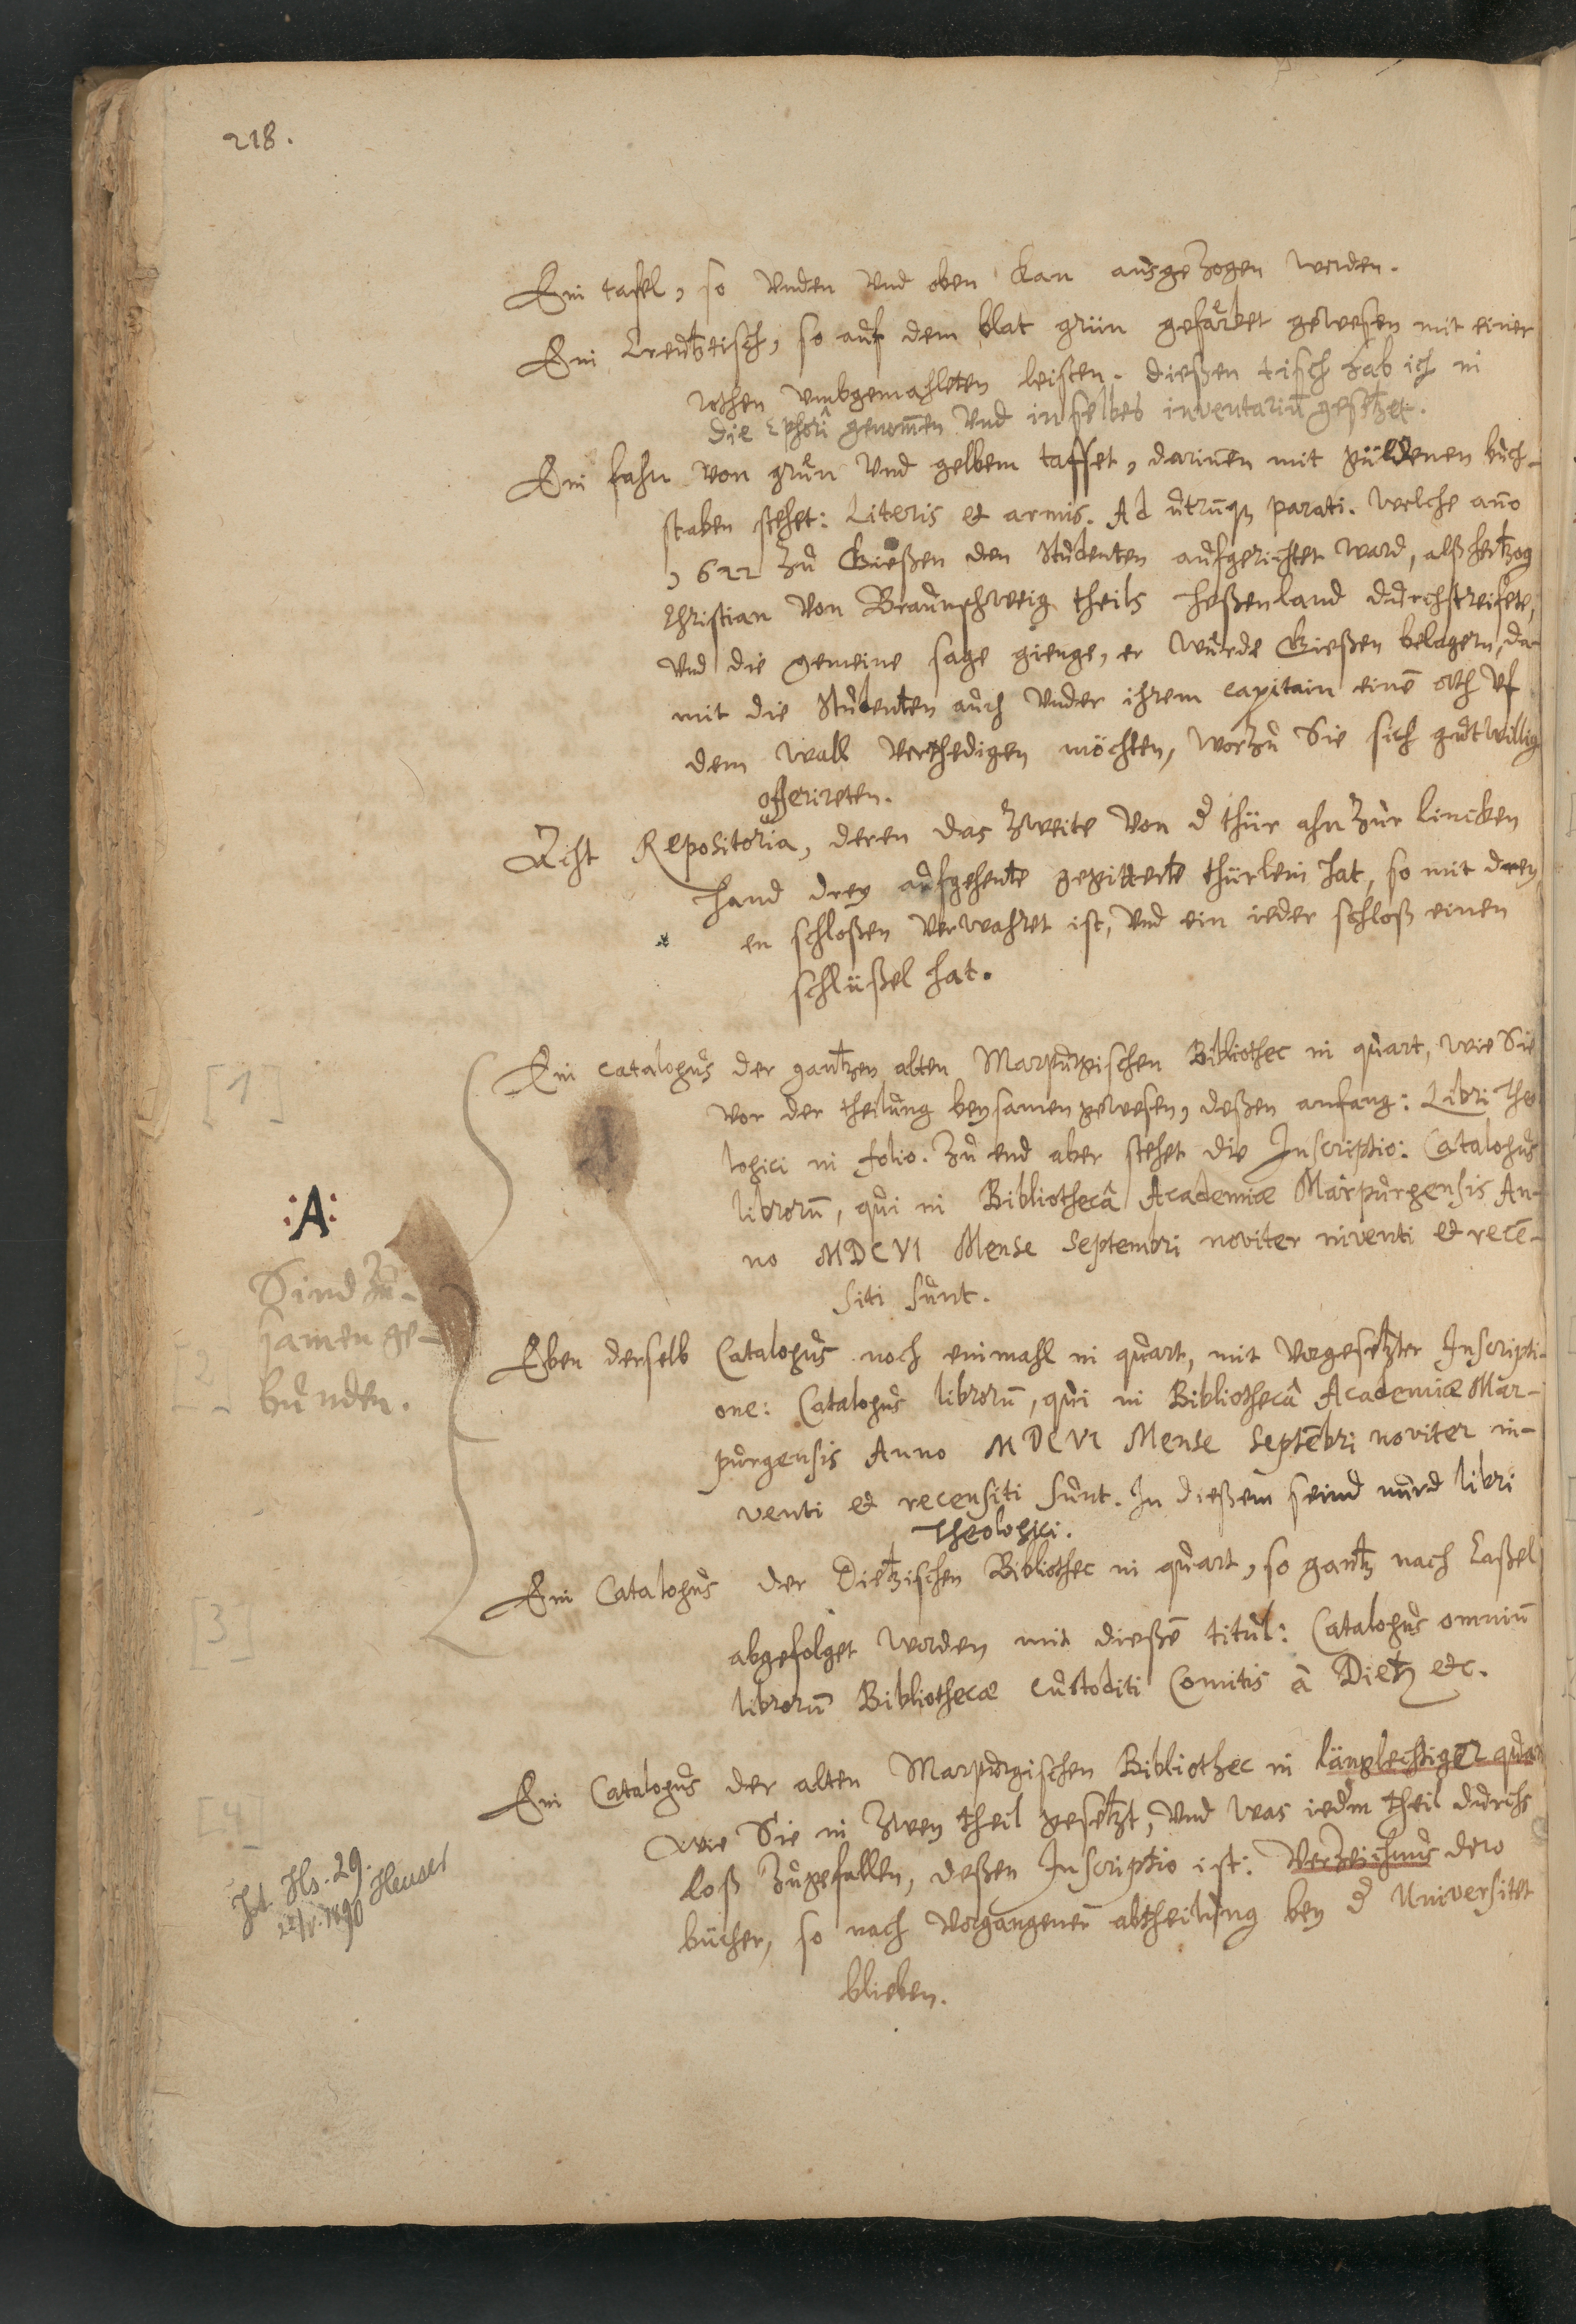 218.
Ein tafel, so vnden vnd oben kan ausgezogen werden.
Ein Creutztisch, so auf dem blat grün gefärbet gewesen mit einer
rothen vmbgemahleten leisten. dießen tisch hab ich in
die Ephoriâ genom̄en vnd in selbes inventariū gesetzet.
Ein fahn von grün vnd gelbem taffet, darin̄en mit güldenen buch-
staben stehet: Literis et armis. Ad utrūq3 parati. welche an̄o
1622 zu Gießen den Studenten aufgerichtet ward, alß Hertzog
Christian von Braunschweig theils Heßenland durchstreifete,
vnd die gemeine sage gienge, er würde Gießen belagern, da-
mit die Studenten auch vnder ihrem capitain einē orth vf
dem Wall verthedigen möchten, worzu Sie sich gutwillig
offerireten.
Acht Repositoria, deren das zweite von d̄ thür ahn zur lincken
hand drey aufgehente gegitterte thürlein hat, so mit drey
en schloßen verwahret ist, vnd ein ieder schloß einen
schlüßel hat.
[1]
Ein catalogus der gantzen alten Marpurgischen Bibliothec in quart, wie Sie
vor der theilung beysamen gewesen, deßen anfang: Libri Theo
logici in folio. Zu end aber stehet die Inscriptio: Catalogus
librorū, qui in Bibliothecâ Academiæ Marpurgensis An-
no MDCVI Mense Septembri noviter inventi et recē-
siti sunt.
:A:
Sind zu-
samen ge-
bunden.
[2]
Eben derselb Catalogus noch einmahl in quart, mit vorgesetzter Inscripti-
one: Catalogus librorū, qui in Bibliothecâ Academiæ Mar-
purgensis Anno MDCVI Mense Septēbri noviter in-
venti et recensiti sunt. In dießem seind nurd libri
Theologici.
[3]
Ein Catalogus der Dietzischen Bibliothec in quart, so gantz nach Caßel
abgefolget worden mit dießē titul: Catalogus omniū
librorū Bibliothecæ custoditi Comitis â Dietz etc.
[4]
Ein Catalogus der alten Marpurgischen Bibliothec in länglechtiger quar
wie Sie in zwey theil gesetzt, vnd was iedem theil durchs
loß zugefallen, deßen Inscriptio ist: Verzeichnus dero
bücher, so nach vorgangener abtheilung bey d̄ Universitet
blieben.
Jtzt Hs. 29.
22/V. 1890 Heuser